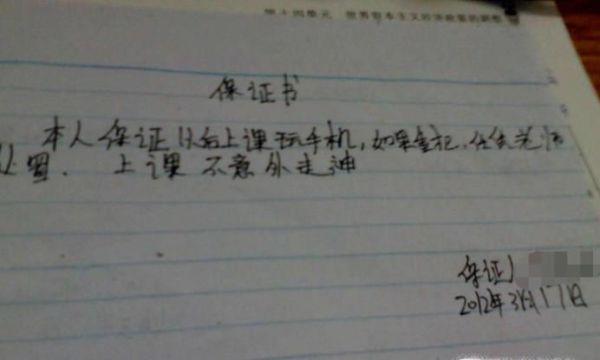 第十四单元 世界资本主义经济政策的调整
保证书
本人保证以后上课玩手机,如果重犯.任凭老师
处置. 上课不意外走神
保证人
2012年3月17日